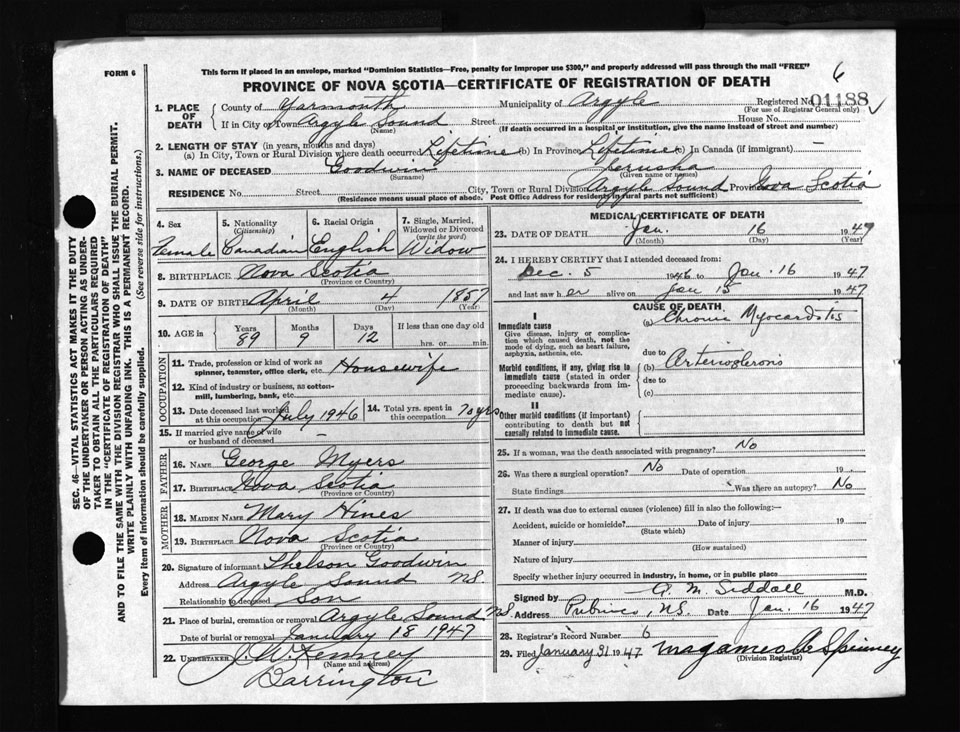 FORM 6
This form if placed in an envelope, marked "Dominion Statistics—Free, penalty for improper use $300," and properly addressed will pass through the mail "FREE"
6
PROVINCE OF NOVA SCOTIA—CERTIFICATE OF REGISTRATION OF DEATH
1. PLACE OF DEATH County of Yarmouth Municipality of Argyle Registered No. 01188
(For use of Registrar General only)
If in City or Town Argyle Sound Street House No.
(Name) (If death occurred in a hospital or institution, give the name instead of street and number)
2. LENGTH OF STAY (in years, months and days)
(a) In City, Town or Rural Division where death occurred Lifetime (b) In Province Lifetime (c) In Canada (if immigrant) —
3. NAME OF DECEASED Goodwin Jerusha
(Surname) (Given name or names)
RESIDENCE No. Street City, Town or Rural Division Argyle Sound Province Nova Scotia
(Residence means usual place of abode. Post Office Address for residents in rural parts not sufficient)
4. Sex
Female
5. Nationality
(Citizenship)
Canadian
6. Racial Origin
English
7. Single, Married, Widowed or Divorced
(write the word)
Widow
8. BIRTHPLACE Nova Scotia
(Province or Country)
9. DATE OF BIRTH April 4 1857
(Month) (Day) (Year)
10. AGE in Years Months Days If less than one day old
89 9 12 hrs. or min.
OCCUPATION
11. Trade, profession or kind of work as spinner, teamster, office clerk, etc. Housewife
12. Kind of industry or business, as cotton-mill, lumbering, bank, etc.
13. Date deceased last worked at this occupation July 1946 14. Total yrs. spent in this occupation 70 yrs
15. If married give name of wife or husband of deceased —
FATHER
16. NAME George Myers
17. BIRTHPLACE Nova Scotia
(Province or Country)
MOTHER
18. MAIDEN NAME Mary Hines
19. BIRTHPLACE Nova Scotia
(Province or Country)
20. Signature of informant Goodwin
Address Argyle Sound N.S.
Relationship to deceased Son
21. Place of burial, cremation or removal Argyle Sound N.S.
Date of burial or removal January 18 1947
22. UNDERTAKER J. W. Kenney
(Name and address)
Barrington
MEDICAL CERTIFICATE OF DEATH
23. DATE OF DEATH Jan. 16 1947
(Month) (Day) (Year)
24. I HEREBY CERTIFY that I attended deceased from:
Dec. 5 1946 to Jan. 16 1947
and last saw her alive on Jan 15 1947
CAUSE OF DEATH
I
Immediate cause
Give disease, injury or complication which caused death, not the mode of dying, such as heart failure, asphyxia, asthenia, etc.
(a) Chronic Myocarditis
due to
Morbid conditions, if any, giving rise to immediate cause (stated in order proceeding backwards from immediate cause).
(b)
due to
(c)
II
Other morbid conditions (if important) contributing to death but not causally related to immediate cause.
25. If a woman, was the death associated with pregnancy? No
26. Was there a surgical operation? No Date of operation 19
State findings Was there an autopsy? No
27. If death was due to external causes (violence) fill in also the following:—
Accident, suicide or homicide? Date of injury 19
(State which)
Manner of injury
(How sustained)
Nature of injury
Specify whether injury occurred in industry, in home, or in public place
Signed by G. M. Siddall M.D.
Address Pubnico, N.S. Date Jan. 16 1947
28. Registrar's Record Number 6
29. Filed January 31 1947 Spinney
(Division Registrar)
SEC. 46—VITAL STATISTICS ACT MAKES IT THE DUTY OF THE UNDERTAKER OR PERSON ACTING AS UNDERTAKER TO OBTAIN ALL THE PARTICULARS REQUIRED IN THE "CERTIFICATE OF REGISTRATION OF DEATH"
AND TO FILE THE SAME WITH THE DIVISION REGISTRAR WHO SHALL ISSUE THE BURIAL PERMIT.
WRITE PLAINLY WITH UNFADING INK. THIS IS A PERMANENT RECORD.
Every item of information should be carefully supplied. (See reverse side for instructions).